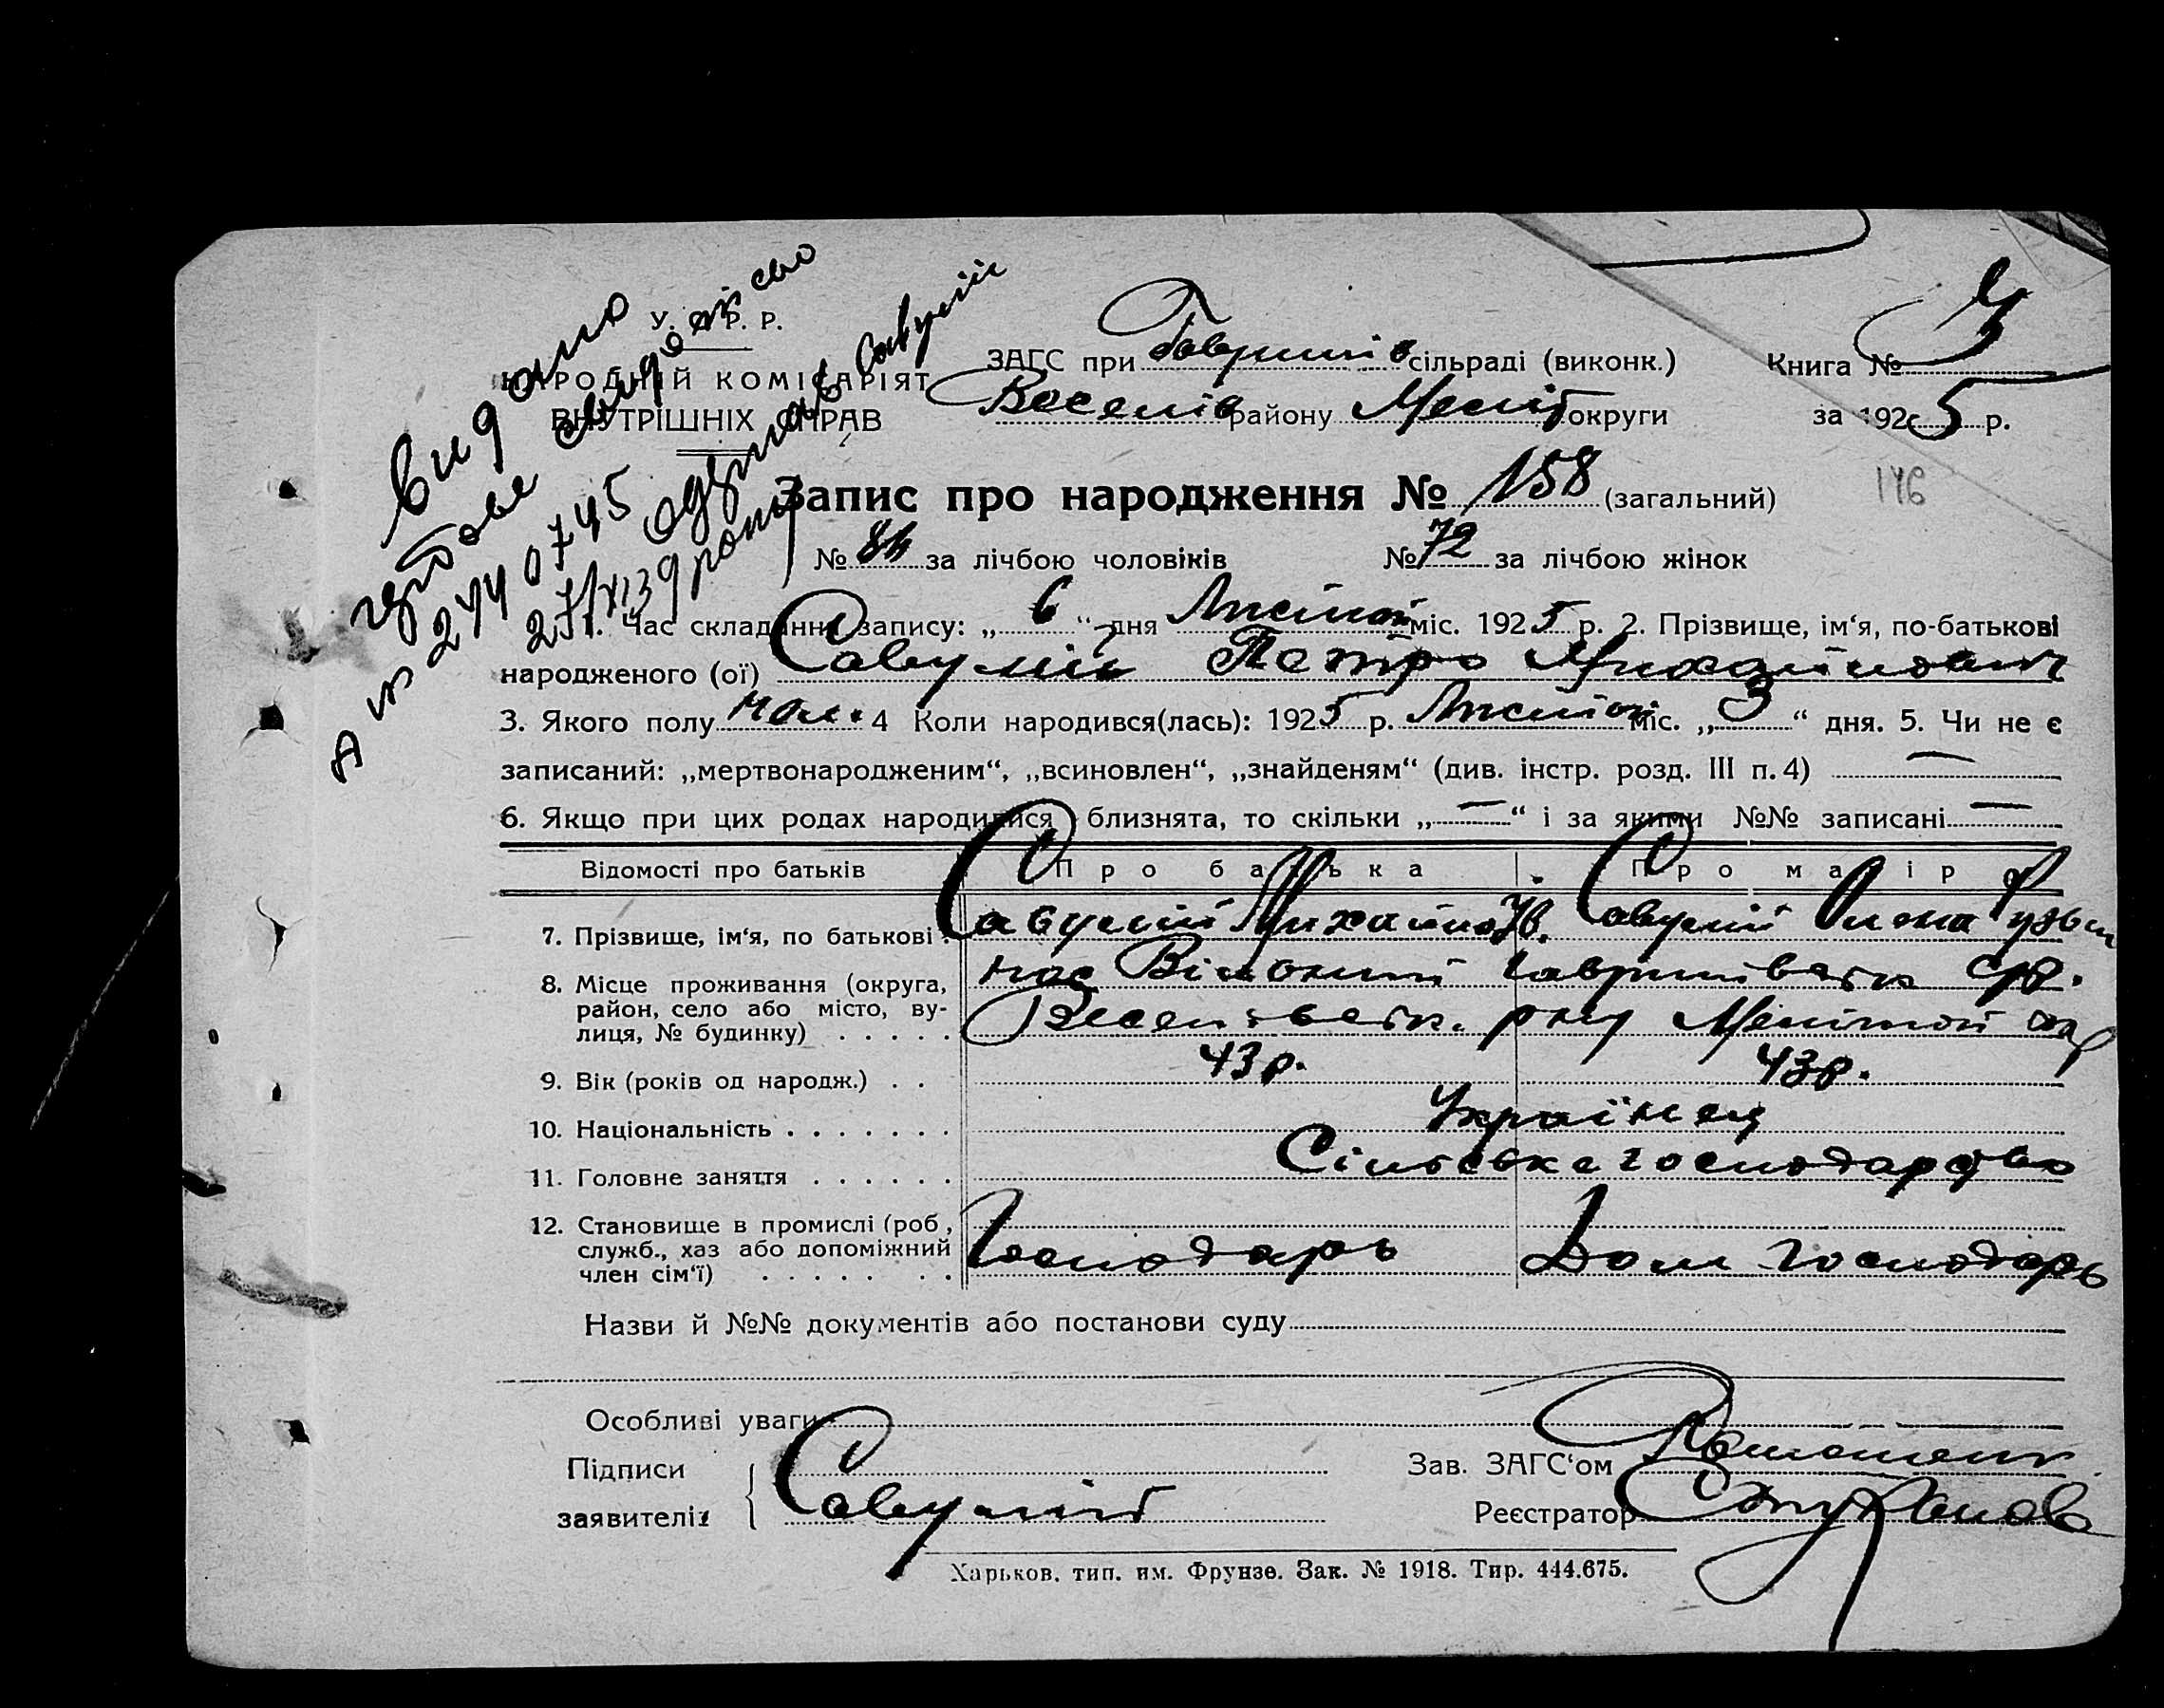 видано
чуве свидоцтво
А № 2440745
27/XI 39 року одержав Савулій
У. С. Р. Р.
НАРОДНІЙ КОМІСАРІЯТ
ВНУТРІШНІХ СПРАВ
ЗАГС при Гавришів сільраді (виконк.) Книга №
Веселів району Меліт округи за 1925 р.
146
Запис про народження № 158 (загальний)
№ 84 за лічбою чоловіків № 72 за лічбою жінок
1. Час складання запису: „6“ дня міс. 1925 р. 2. Прізвище, ім‘я, по-батькові
народженого (ої) Савулій Петро Михайлович
3. Якого полу чол. 4 Коли народився(лась): 1925 р. міс. „3“ дня. 5. Чи не є
записаний: „мертвонародженим“, „всиновлен“, „знайденям“ (див. інстр. розд. III п. 4) —
6. Якщо при цих родах народилися близнята, то скільки „—“ і за якими №№ записані —
Відомості про батьків Про батька Про матір
7. Прізвище, ім‘я, по батькові . Савулій Михайло Ів. Савулій
8. Місце проживання (округа, район, село або місто, вулиця, № будинку) . . . . . Гавришівськ с/р.
Веселівськ. р-ну Мелітопол окр
9. Вік (років од народж.) . . 43 р. 43 р.
10. Національність . . . . . . . Українец
11. Головне заняття . . . . . . Сільське господарство
12. Становище в промислі (роб, служб., хаз або допоміжний член сім‘ї) . . . . . . . Господарь Дом господарь
Назви й №№ документів або постанови суду
Особливі уваги
Підписи Зав. ЗАГС‘ом
заявителів { Савулій Реєстратор
Харьков. тип. им. Фрунзе. Зак. № 1918. Тир. 444.675.